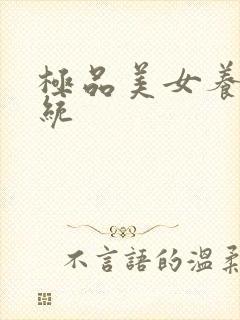 極品美女養
統
不言語的溫柔